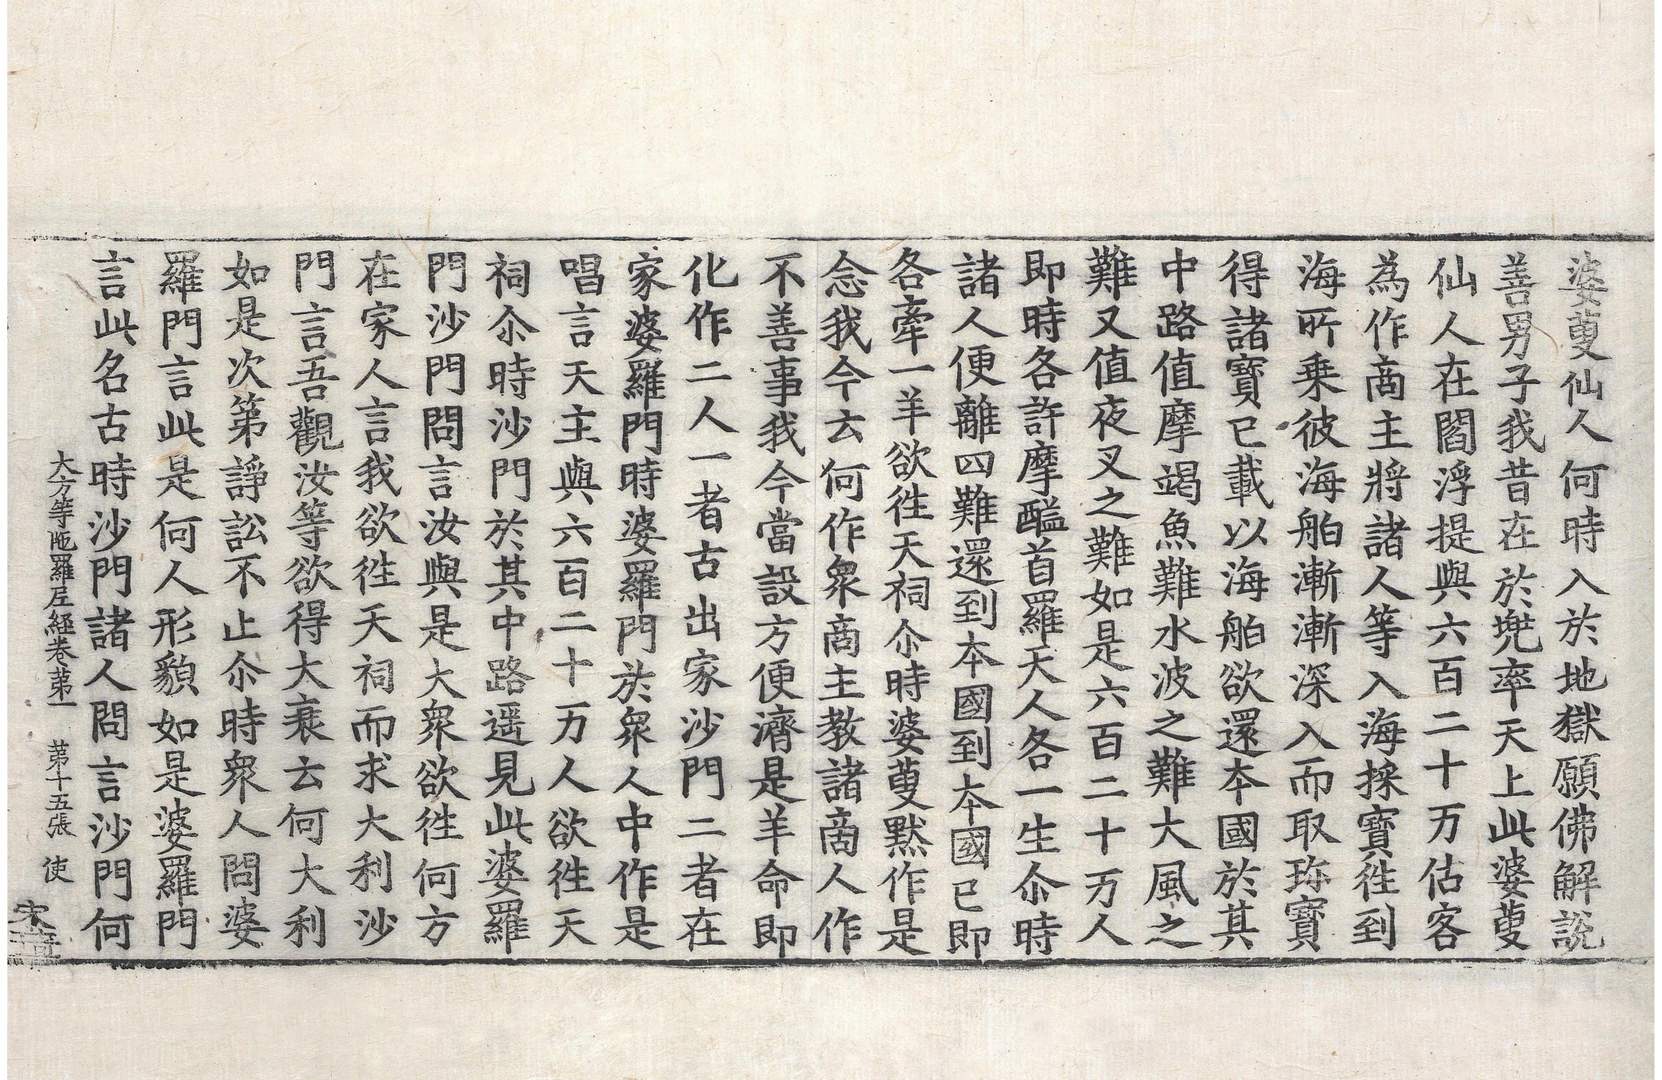 婆藪仙人何時入於地獄願佛解說
善男子我昔在於兠率天上此婆藪
仙人在閻浮提與六百二十万估客
為作商主將諸人等入海採寶徃到
海所乗彼海舶漸漸深入而取珎寶
得諸寶已載以海舶欲還本國於其
中路值摩竭魚難水波之難大風之
難又值夜叉之難如是六百二十万人
即時各許摩醯首羅天人各一生尒時
諸人便離四難還到本國到本國已即
各牽一羊欲徃天祠尒時婆藪黙作是
念我今云何作衆商主教諸商人作
不善事我今當設方便濟是羊命即
化作二人一者古出家沙門二者在
家婆羅門時婆羅門於衆人中作是
唱言天主與六百二十万人欲徃天
祠尒時沙門於其中路遥見此婆羅
門沙門問言汝與是大衆欲徃何方
在家人言我欲徃天祠而求大利沙
門言吾觀汝等欲得大衰云何大利
如是次第諍訟不止尒時衆人問婆
羅門言此是何人形貌如是婆羅門
言此名古時沙門諸人問言沙門何
大方等陁羅尼經卷苐一　苐十五張　使